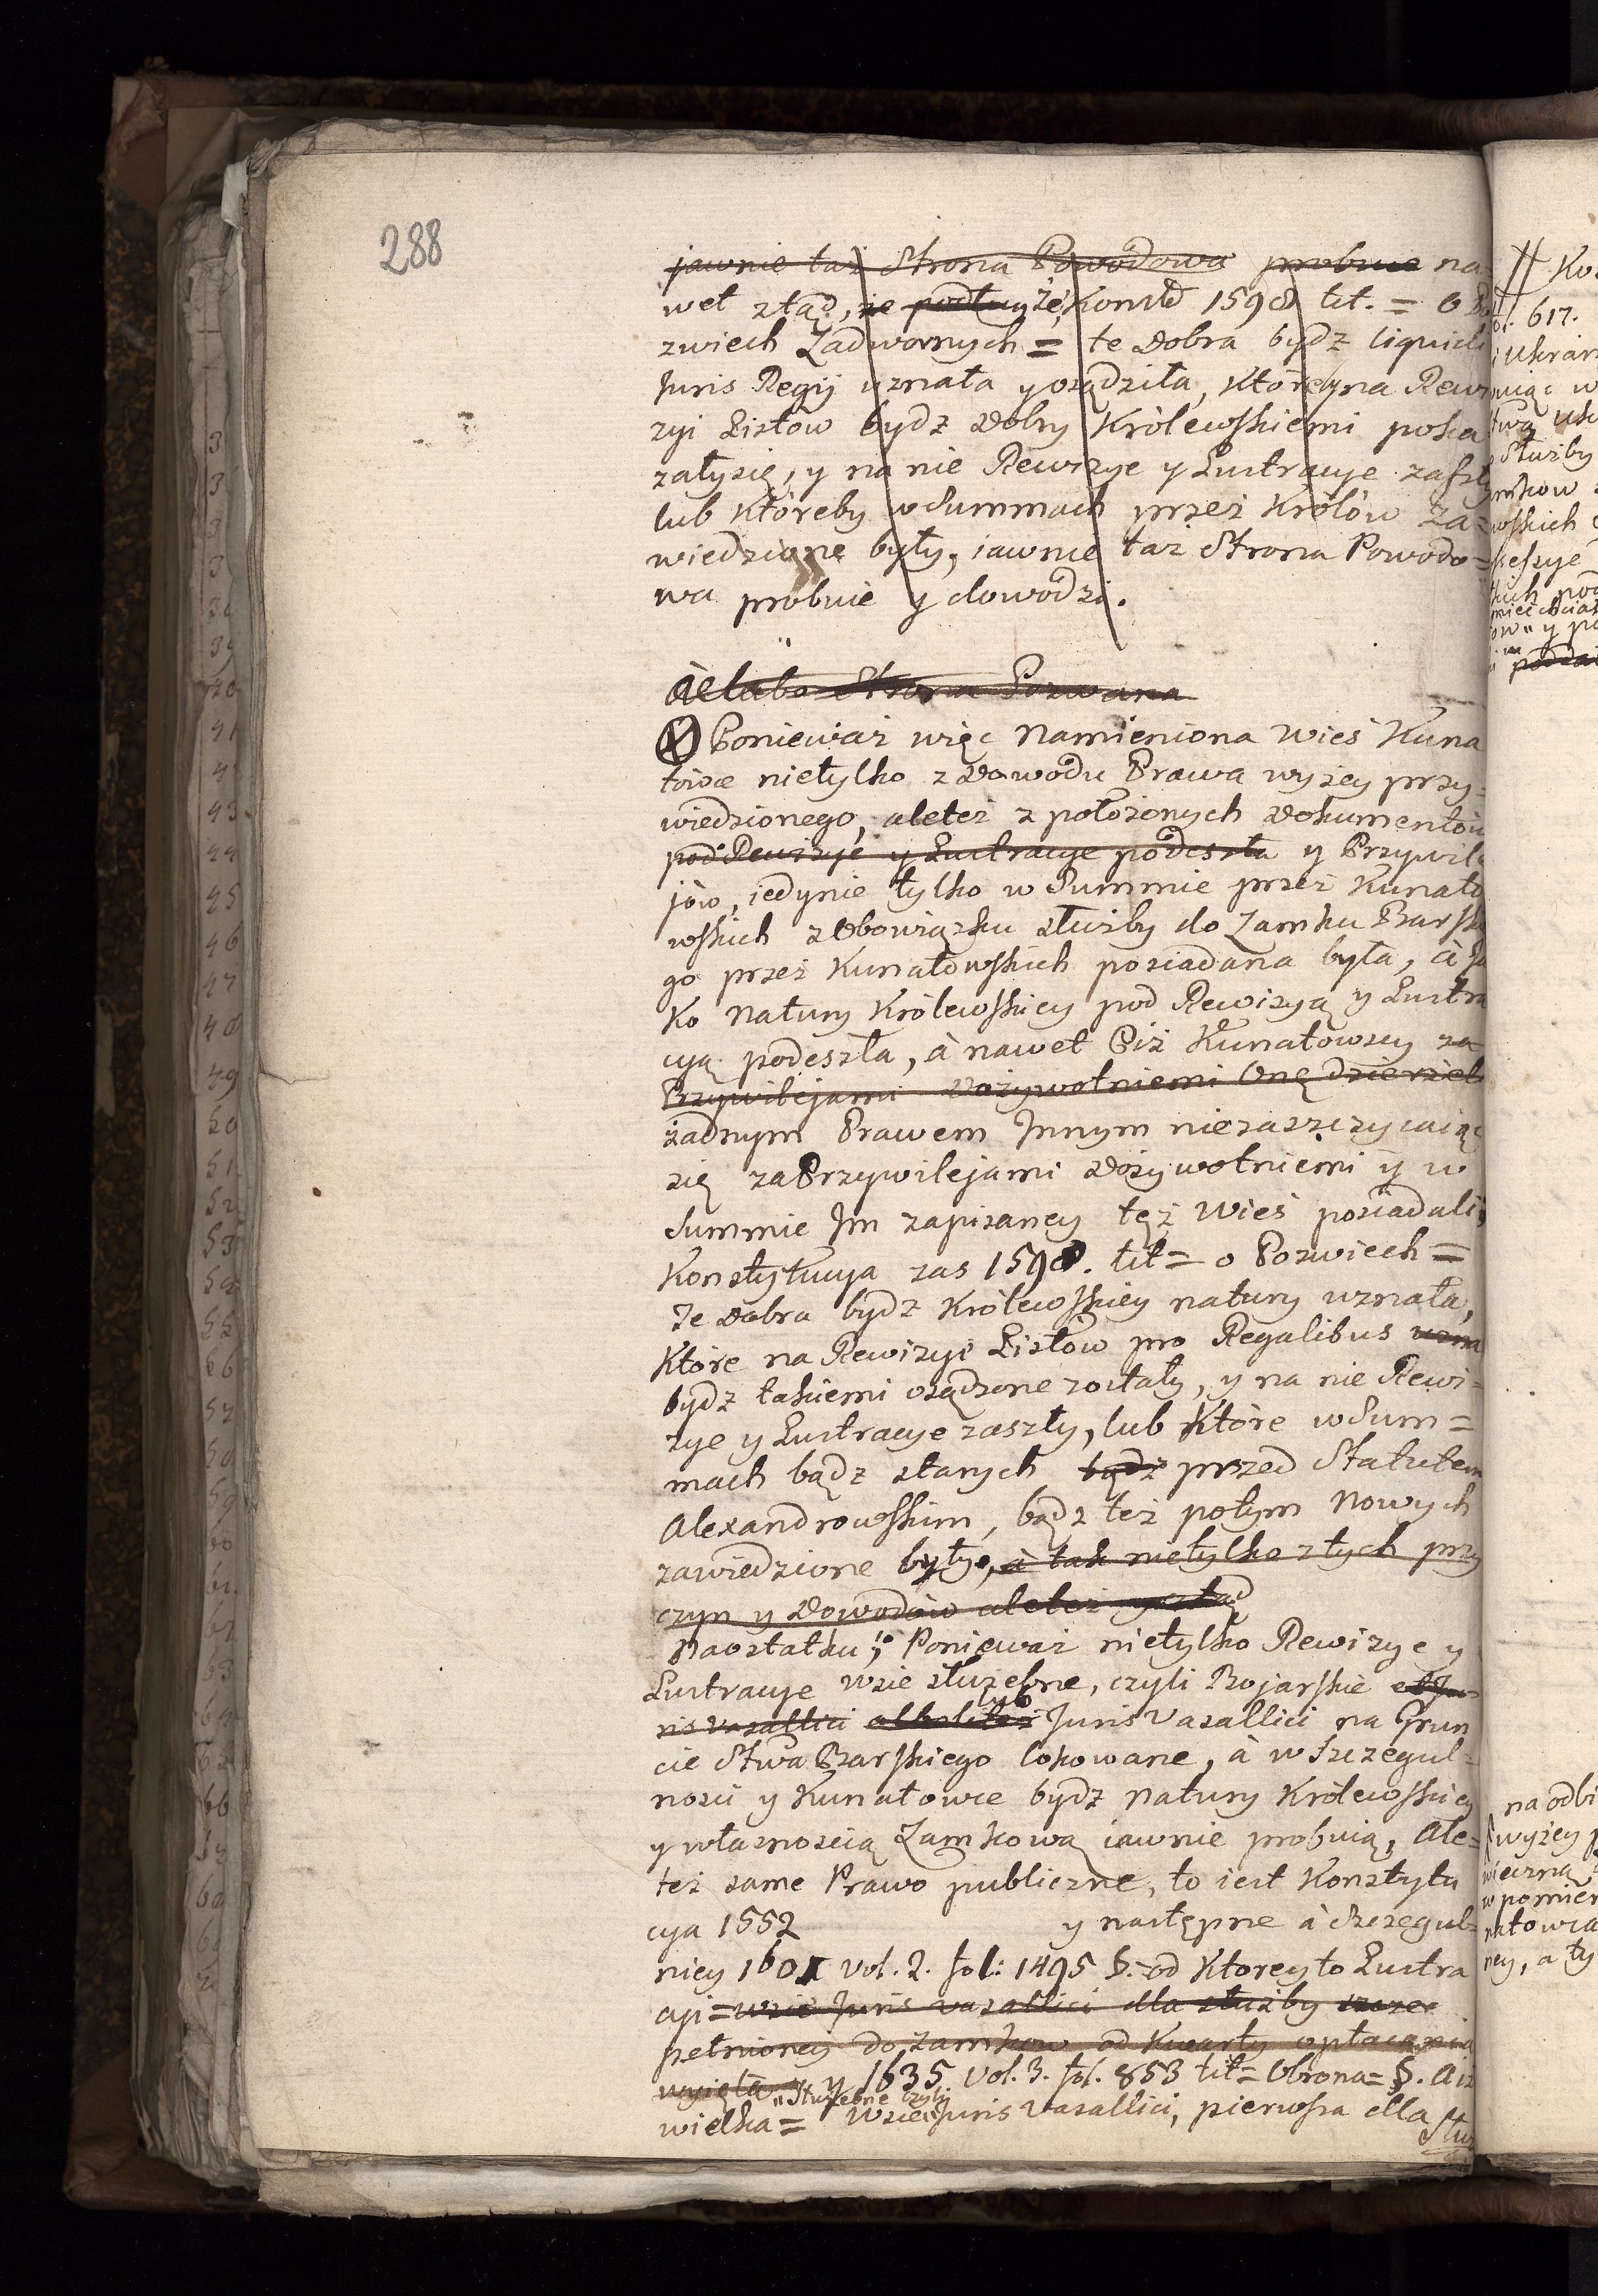 288
jawnie taż Strona Powodowa probuie na=
wet ztąd, że podług że Konst 1598 tit. = O Po
zwiech Zadwornych = te Dobra bydź liquidi
Juris Regij uznała y osądziła, które na Rewi
zyi Listow bydz Dobry Królewskiemi poka
zały się, y na nie Rewizye y Lustracye zaszły
lub któreby w Summach przez Królów za=
wiedzione były, iawnie taż Strona Powodo=
wa probuie y dowodzi.
à e lubo Strona Pozwana
Poniewaz więc Namieniona Wieś Kuna
towce nietylko z Dowodu Prawa wyżey przy=
wiedzionego, aleteż z położonych Dokumentów
pod Rewizye y Lustracye podeszła y Przywile
jów, iedynie tylko w Summie przez Kunato
wskich z Obowiązku służby do Zamku Barskie
go przez Kunatowskich posiadana była, à Ja
ko Natury Królewskiey pod Rewizyą y Lustra
cyą podeszła, à nawet Ciż Kunatowscy za
Przywilejami Dożywotniemi Onę dzierżeli
żadnym Prawem Innym niezaszczycaiąc
się za Przywilejami Dożywotniemi y w
Summie Im zapisaney tęż Wieś posiadali,
Konstytucya zas 1598. tit = o Pozwiech =
Te Dobra bydź Królewskiey natury uznała,
Które na Rewizyi Listów pro Regalibus uzna
bydź takiemi osądzone zostały, y na nie Rewi=
zye y Lustracye zaszły, lub Które w Sum=
mach bądź starych bądź przed Statutem
Alexandrowskim, bądź też potym Nowych
zawiedzione były, à tak nietylko z tych przy
czyn y Dowodów aleteż y ztąd
Naostatku; Ponieważ nietylko Rewizye y
Lustracye wsie służebne, czyli Bojarskie
ris vasallici lub Juris Vasallici na Grun
cie Stwa Barskiego lokowane, à w Szczegul=
nosci y Kunatowce bydź Natury Królewskiey
y własnoscią Zamkową iawnie probuią, Ale=
też same Prawo publiczne, to iest Konstytu
cya 1552 y następne à Szczegul=
niey 1601 Vol. 2. fol: 1495 §. od Ktorey to Lustra
cyi = wsie Juris vasallici dla służby
pełnioney do Zamkow od Kwarty opłacania
wyięła y 1635 Vol. 3. fol. 853 tit = Obrona = §. A iż
"Służebne czyli
wielka = Wsie Juris Vasallici, pierwsza dla
Słu